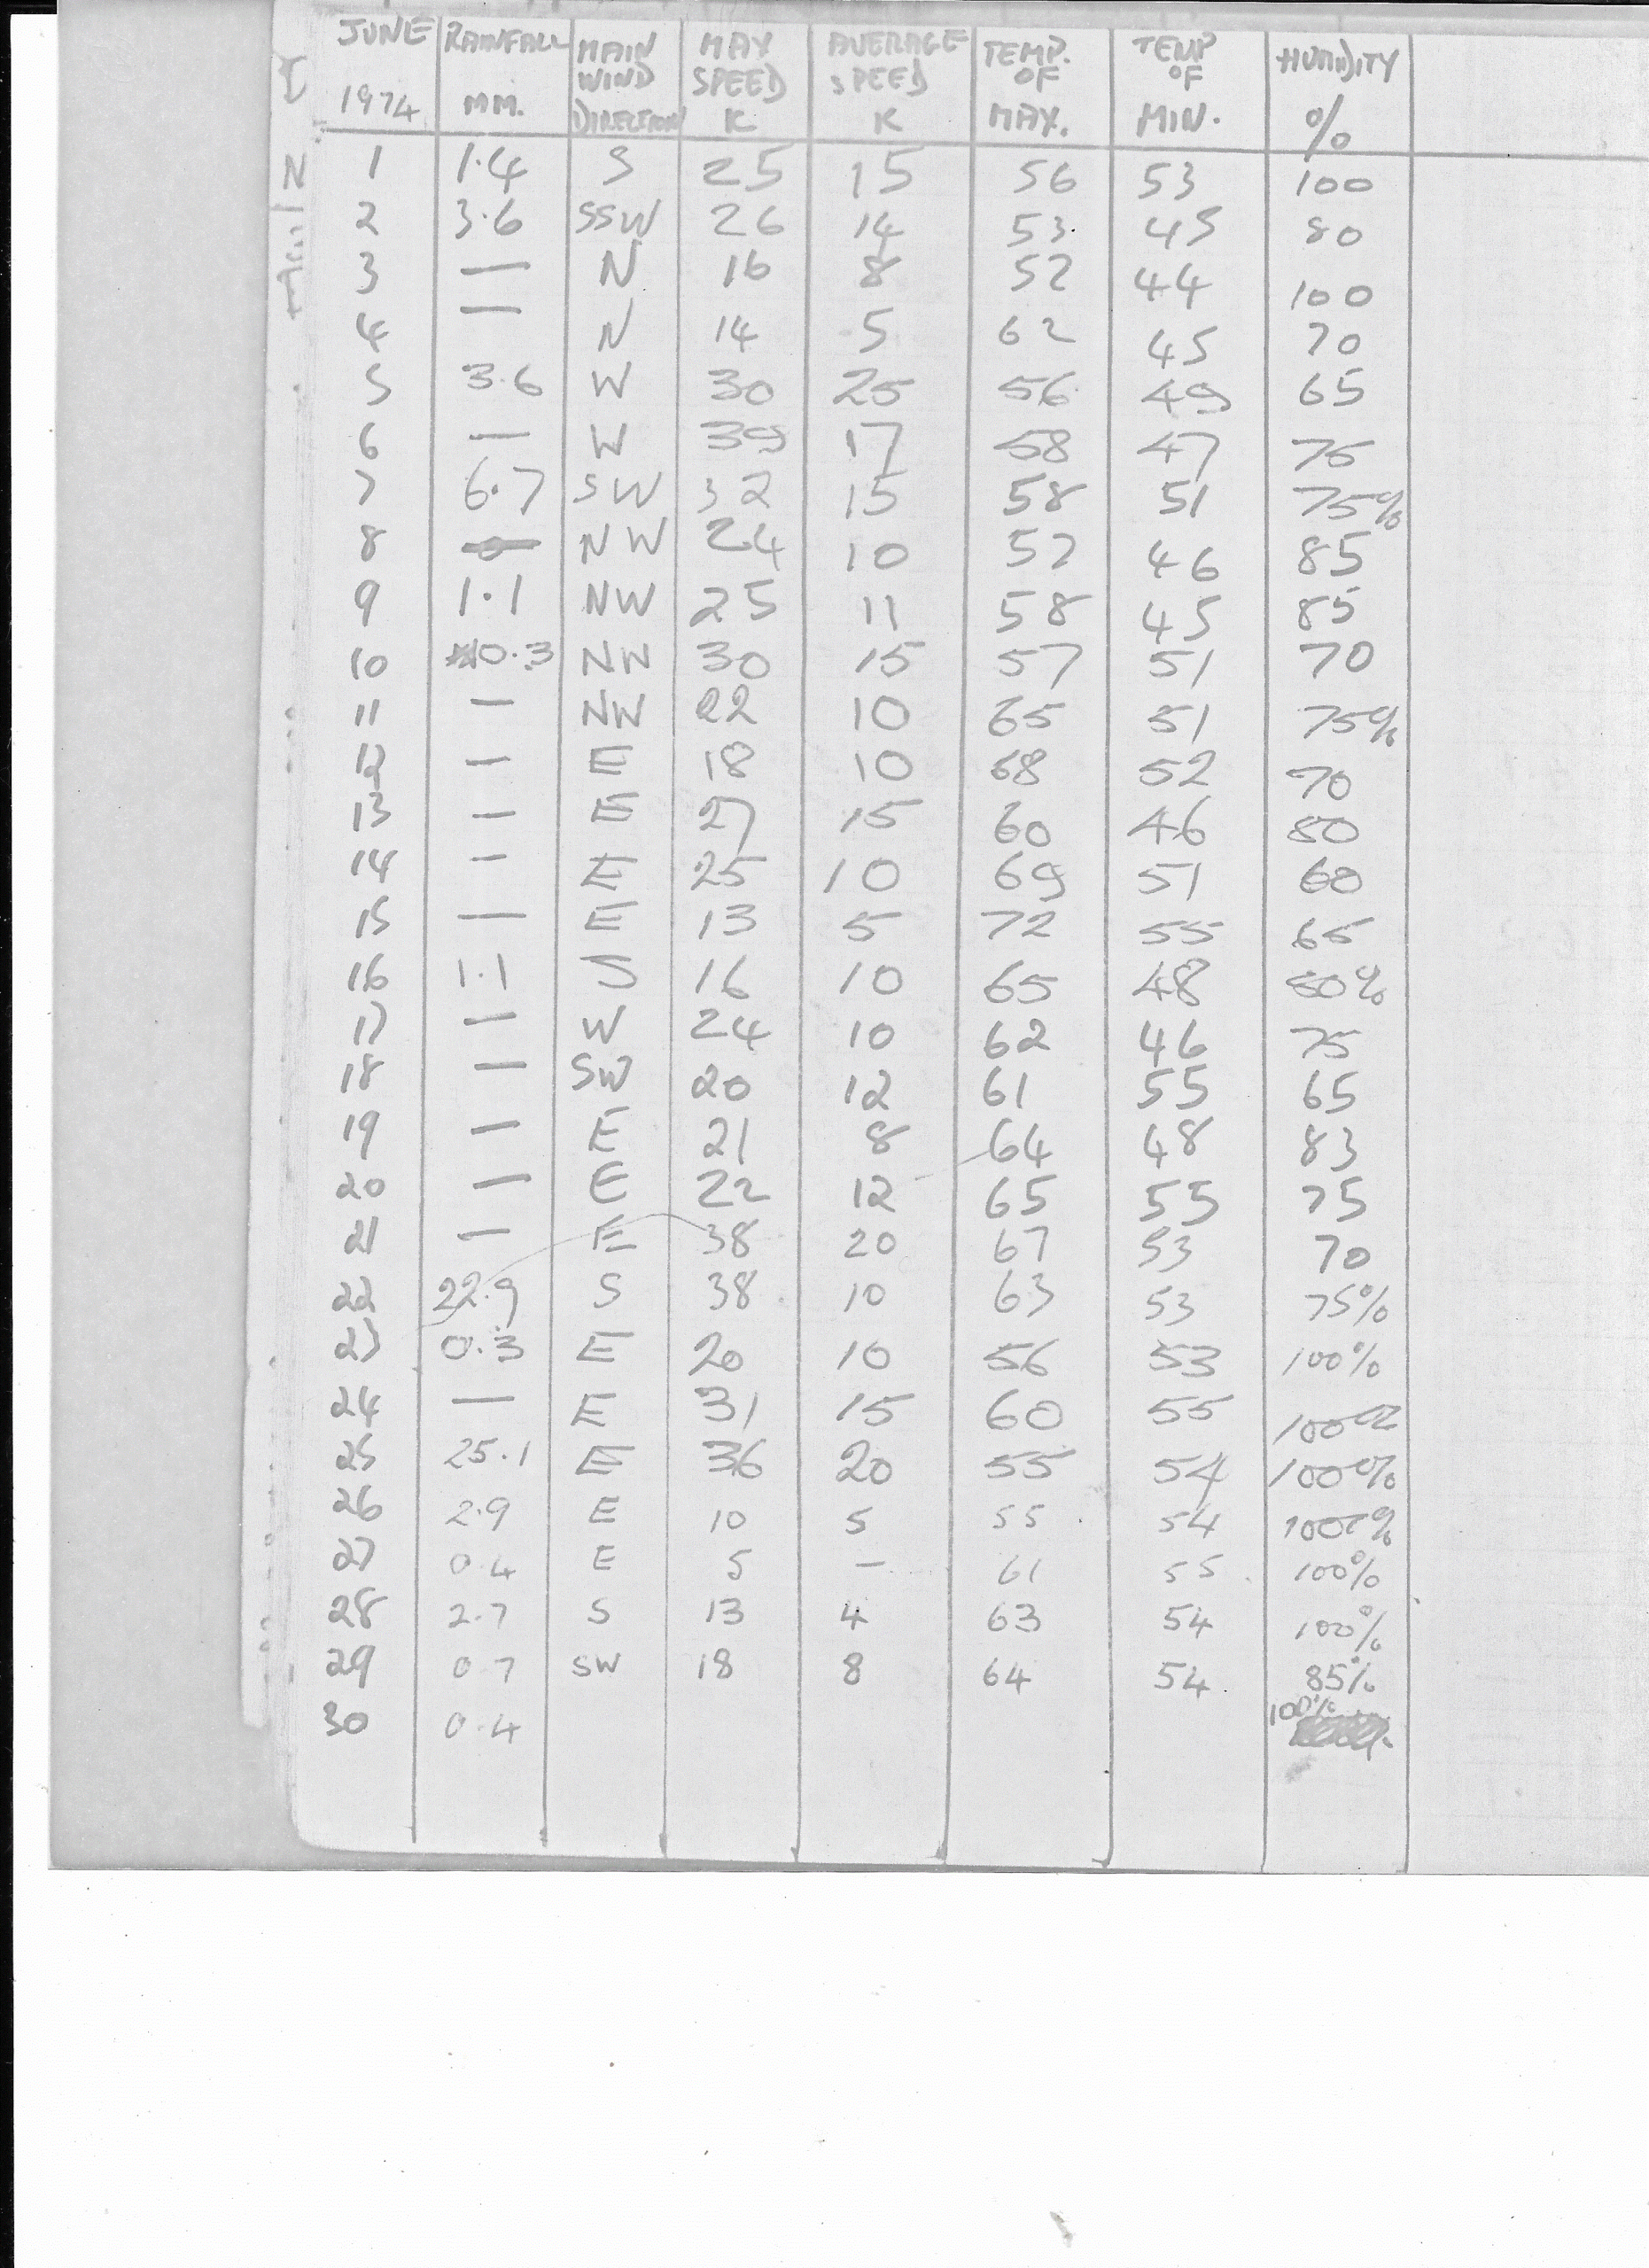 JUNE 1974 RAINFALL MM. MAIN WIND DIRECTION MAX SPEED K AVERAGE SPEED K TEMP. OF MAX. TEMP OF MIN. HUMIDITY %
1 1.4 S 25 15 56 53 100
2 3.6 SSW 26 14 53 45 80
3 — N 16 8 52 44 100
4 — N 14 5 62 45 70
5 3.6 W 30 25 56 49 65
6 — W 39 17 58 47 75
7 6.7 SW 32 15 58 51 75%
8 — NW 24 10 57 46 85
9 1.1 NW 25 11 58 45 85
10 0.3 NW 30 15 57 51 70
11 — NW 22 10 65 51 75%
12 — E 18 10 68 52 70
13 — E 27 15 60 46 80
14 — E 25 10 69 51 60
15 — E 13 5 72 55 65
16 1.1 S 16 10 65 48 %
17 — W 24 10 62 46 75
18 — SW 20 12 61 55 65
19 — E 21 8 64 48 83
20 — E 22 12 65 55 75
21 — E 38 20 67 53 70
22 22.9 S 38 10 63 53 75%
23 0.3 E 20 10 56 53 100%
24 — E 31 15 60 55 100%
25 25.1 E 36 20 55 54 100%
26 2.9 E 10 5 55 54 100%
27 0.4 E 5 — 61 55 100%
28 2.7 S 13 4 63 54 100%
29 0.7 SW 18 8 64 54 85%
30 0.4 100%